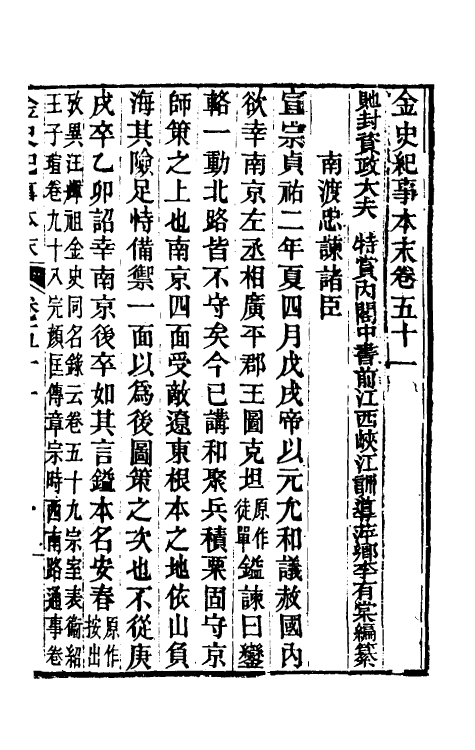 金史紀事本末卷五十一
貤封資政大夫　特賞內閣中書前江西峽江訓導萍鄉李有棠編纂
南渡忠諫諸臣
宣宗貞祐二年夏四月戊戌帝以元允和議赦國內
欲幸南京左丞相廣平郡王圖克坦原作徒單鎰諫曰鑾
輅一動北路皆不守矣今已講和聚兵積粟固守京
師策之上也南京四面受敵遼東根本之地依山負
海其險足恃備禦一面以為後圖策之次也不從庚
戌卒乙卯詔幸南京後卒如其言鎰本名安春原作按出
攷異汪輝祖金史同名錄云卷五十九宗室表衞紹
王子瑄卷九十八完顏匡傳章宗時西南路通事卷
金史紀事本末　卷五十一　一